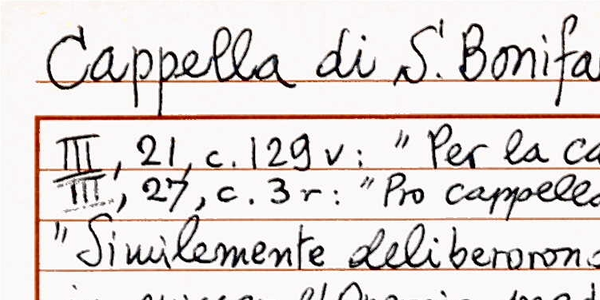 Cappella di S. Bonifa
III, 21, c. 129 v: "Per la ca
III, 27, c. 3 r: "Pro cappella
"Similemente deliberorono